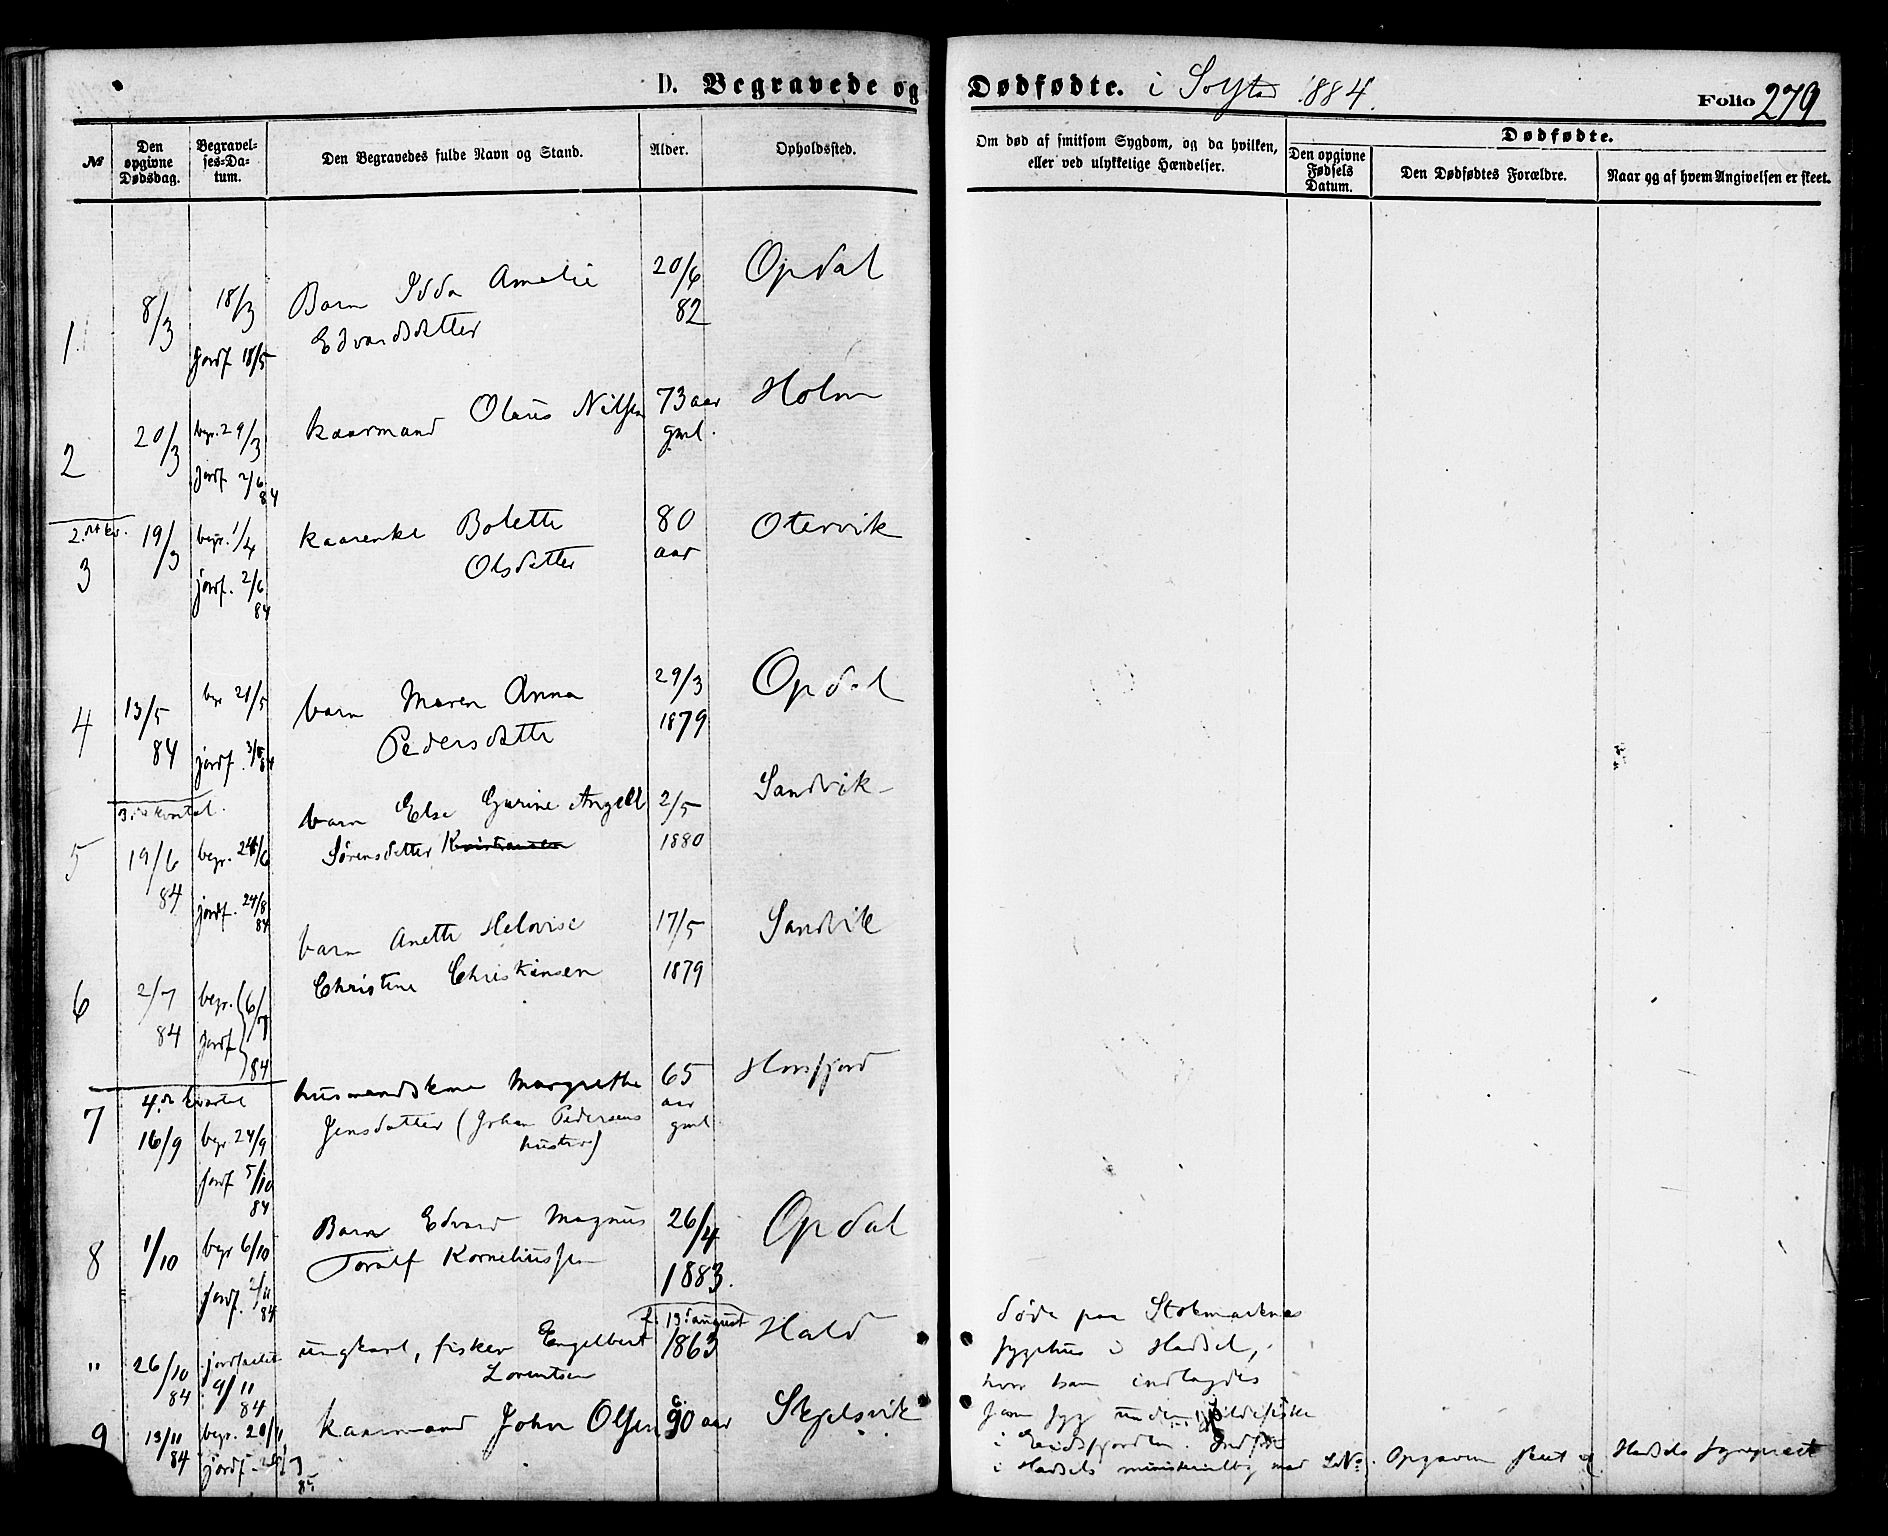 D. Begravede og Dødfødte. i 1884. Folio 279
№
Den opgivne Dødsdag.
Begravelses-Datum.
Den Begravedes fulde Navn og Stand.
Alder.
Opholdssted.
Om død af smitsom Sygdom, og da hvilken,
eller ved ulykkelige Hændelser.
Dødfødte.
Den opgivne Fødsels Datum.
Den Dødfødtes Forældre.
Naar og af hvem Angivelsen er skeet.
1 8/3 18/3 Barn Idda Amalie 20/6 Opdal
jordf 18/5 Edvardsdatter 82
2 20/3 begr. 29/3 kaarmand Olaus Nilsen 73 aar Holm
jordf 2/6 84 gml.
3 19/3 begr. 1/4 kaarenke Bolette 80 Otervik
jordf. 2/6 84 Olsdatter aar
4 13/5 begr 21/5 barn Maren Anna 29/3 Opdal
84 jordf. Pedersdatter 1879
3die kvartal.
5 19/6 begr. 24/6 barn Else Gurine Angell 2/5 Sandvik
84 jordf. 24/8 84 Sørensdatter 1880
6 2/7 begr. 6/7 barn Anette Helovise 17/5 Sandvik
84 jordf 84 Christine Christiansen 1879
4de kvartal
7 16/9 begr 24/9 husmandskone Margrethe 65 Horsfjord
jordf 5/10 84 Jensdatter (Johan Pedersens aar
hustru) gml
8 1/10 begr 6/10 Barn Edvard Magnus 26/4 Opdal
jordf. 2/11 84 Toralf Korneliussen 1883.
" 26/10 84 jordfæstet 9/11 84 ungkarl, fisker Engelbert f. 13. august 1863 Hald
Lorentsen
døde paa Stokmarknes
sygehus i Hadsel,
hvor han indlagdes
som syg under sildefiske
i Eidsfjorden. Indført
i Hadsels ministerialbog med LNo.
9 13/11 84 begr. 20/11 kaarmand John Olsen 90 aar Skjelsvik
jordf. 85